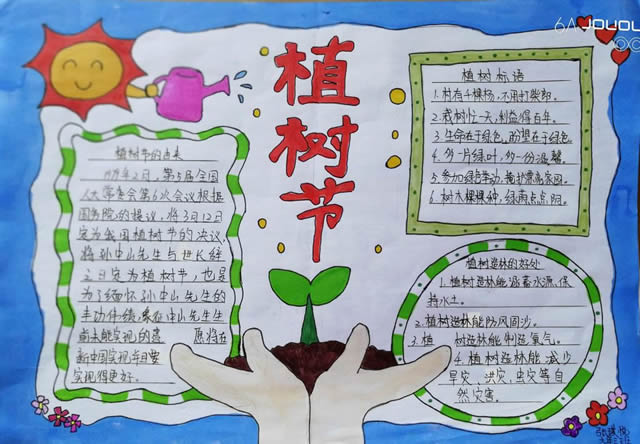 植树节
植树节的由来
1979年2月，第5届全国
人大常委会第6次会议根据
国务院的提议，将3月12日
定为我国植树节的决议，
将孙中山先生与世长辞
之日定为植树节，也是
为了缅怀孙中山先生的
丰功伟绩，
实现得更好。
植树标语
1.村有千棵杨，不用打柴郎。
2.栽树忙一天，利益得百年。
3.生命在于绿色，盼望在于绿色
4.多一片绿叶，多一份温馨。
6.树木棵棵种，绿雨点点阴。
植树造林的好处
1.植树造林能涵蓄水源，保
持水土。
2.植树造林能防风固沙。
3.植 树造林能制造氧气。
4.植树造林能减少
旱灾、洪灾、虫灾等自
然灾害。